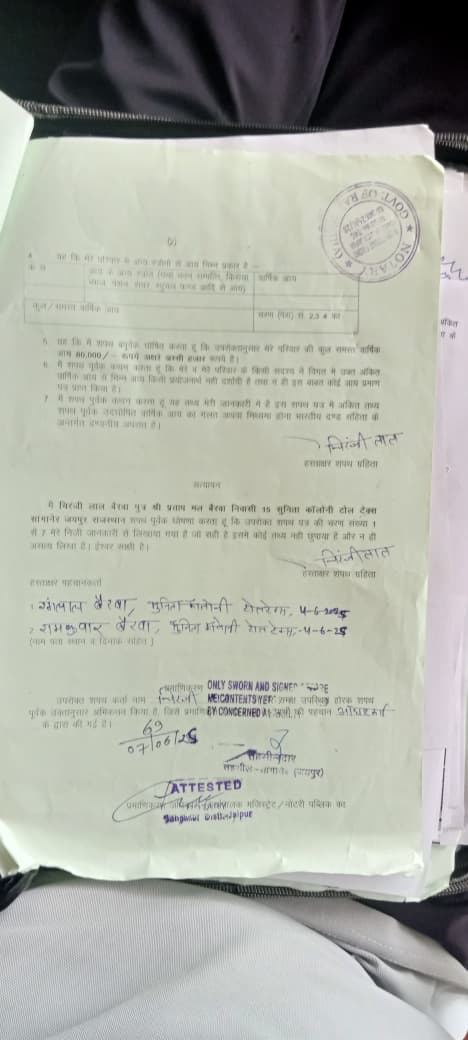 (2)
NOTARY
GOVT. OF RA
4. यह कि मेरे परिवार में अन्य स्त्रोतों से आय निम्न प्रकार है :-
क्र सं
आय के अन्य स्त्रोत (यथा
वार्षिक आय
कुल / समस्त वार्षिक आय
चरण (पैरा) सं. 2,3,4 का
5. यह कि मैं शपथ पूर्वक घोषित करता हूं कि उपरोक्तानुसार मेरे परिवार की कुल समस्त वार्षिक
आय 80,000/- रूपये अक्षरे अस्सी हजार रूपये है।
6. मैं शपथ पूर्वक कथन करता हूं कि मेरे व मेरे परिवार के किसी सदस्य ने विगत में उक्त अंकित
वार्षिक आय से भिन्न आय किसी प्रयोजनार्थ नहीं दर्शायी है तथा न ही इस बाबत कोई आय प्रमाण
पत्र प्राप्त किया है।
7. मैं शपथ पूर्वक कथन करता हूं यह तथ्य मेरी जानकारी में है इस शपथ पत्र में अंकित तथ्य
शपथ पूर्वक उदघोषित वार्षिक आय का गलत अथवा मिथ्या होना भारतीय दण्ड संहिता के
अन्तर्गत दण्डनीय अपराध है।
चिरंजी लाल
हस्ताक्षर शपथ ग्रहिता
सत्यापन
मैं चिरंजी लाल बैरवा पुत्र श्री प्रताप मल बैरवा निवासी 15 सुनिता कॉलोनी टोल टेक्स
सांगानेर जयपुर राजस्थान शपथ पूर्वक घोषणा करता हूं कि उपरोक्त शपथ पत्र की चरण संख्या 1
से 7 मेरे निजी जानकारी से लिखाया गया है जा सही है इसमे कोई तथ्य नहीं छुपाया है और न ही
असत्य लिखा है। ईश्वर साक्षी है।
चिरंजीलाल
हस्ताक्षर शपथ ग्रहिता
हस्ताक्षर पहचानकर्ता
1. बैरवा, सुनिता कालोनी टोलटेक्स, 4-6-2025
2. रामकुवार बैरवा, सुनिता कालोनी टोल टेक्स, -4-6-25
(नाम पता स्थान व दिनांक सहित)
प्रमाणिकरण ONLY SWORN AND SIGNED
उपरोक्त शपथ कर्ता नाम चिरंजी समक्ष उपस्थित होकर शपथ
पूर्वक उक्तानुसार अभिकथन किया है, जिसे BY CONCERNED की पहचान
के द्वारा की गई है।
69
07/06/25
तहसीलदार
तहसील-सांगानेर (जयपुर)
ATTESTED
मजिस्ट्रेट / नोटरी पब्लिक का
Sanganer Distt. Jaipur